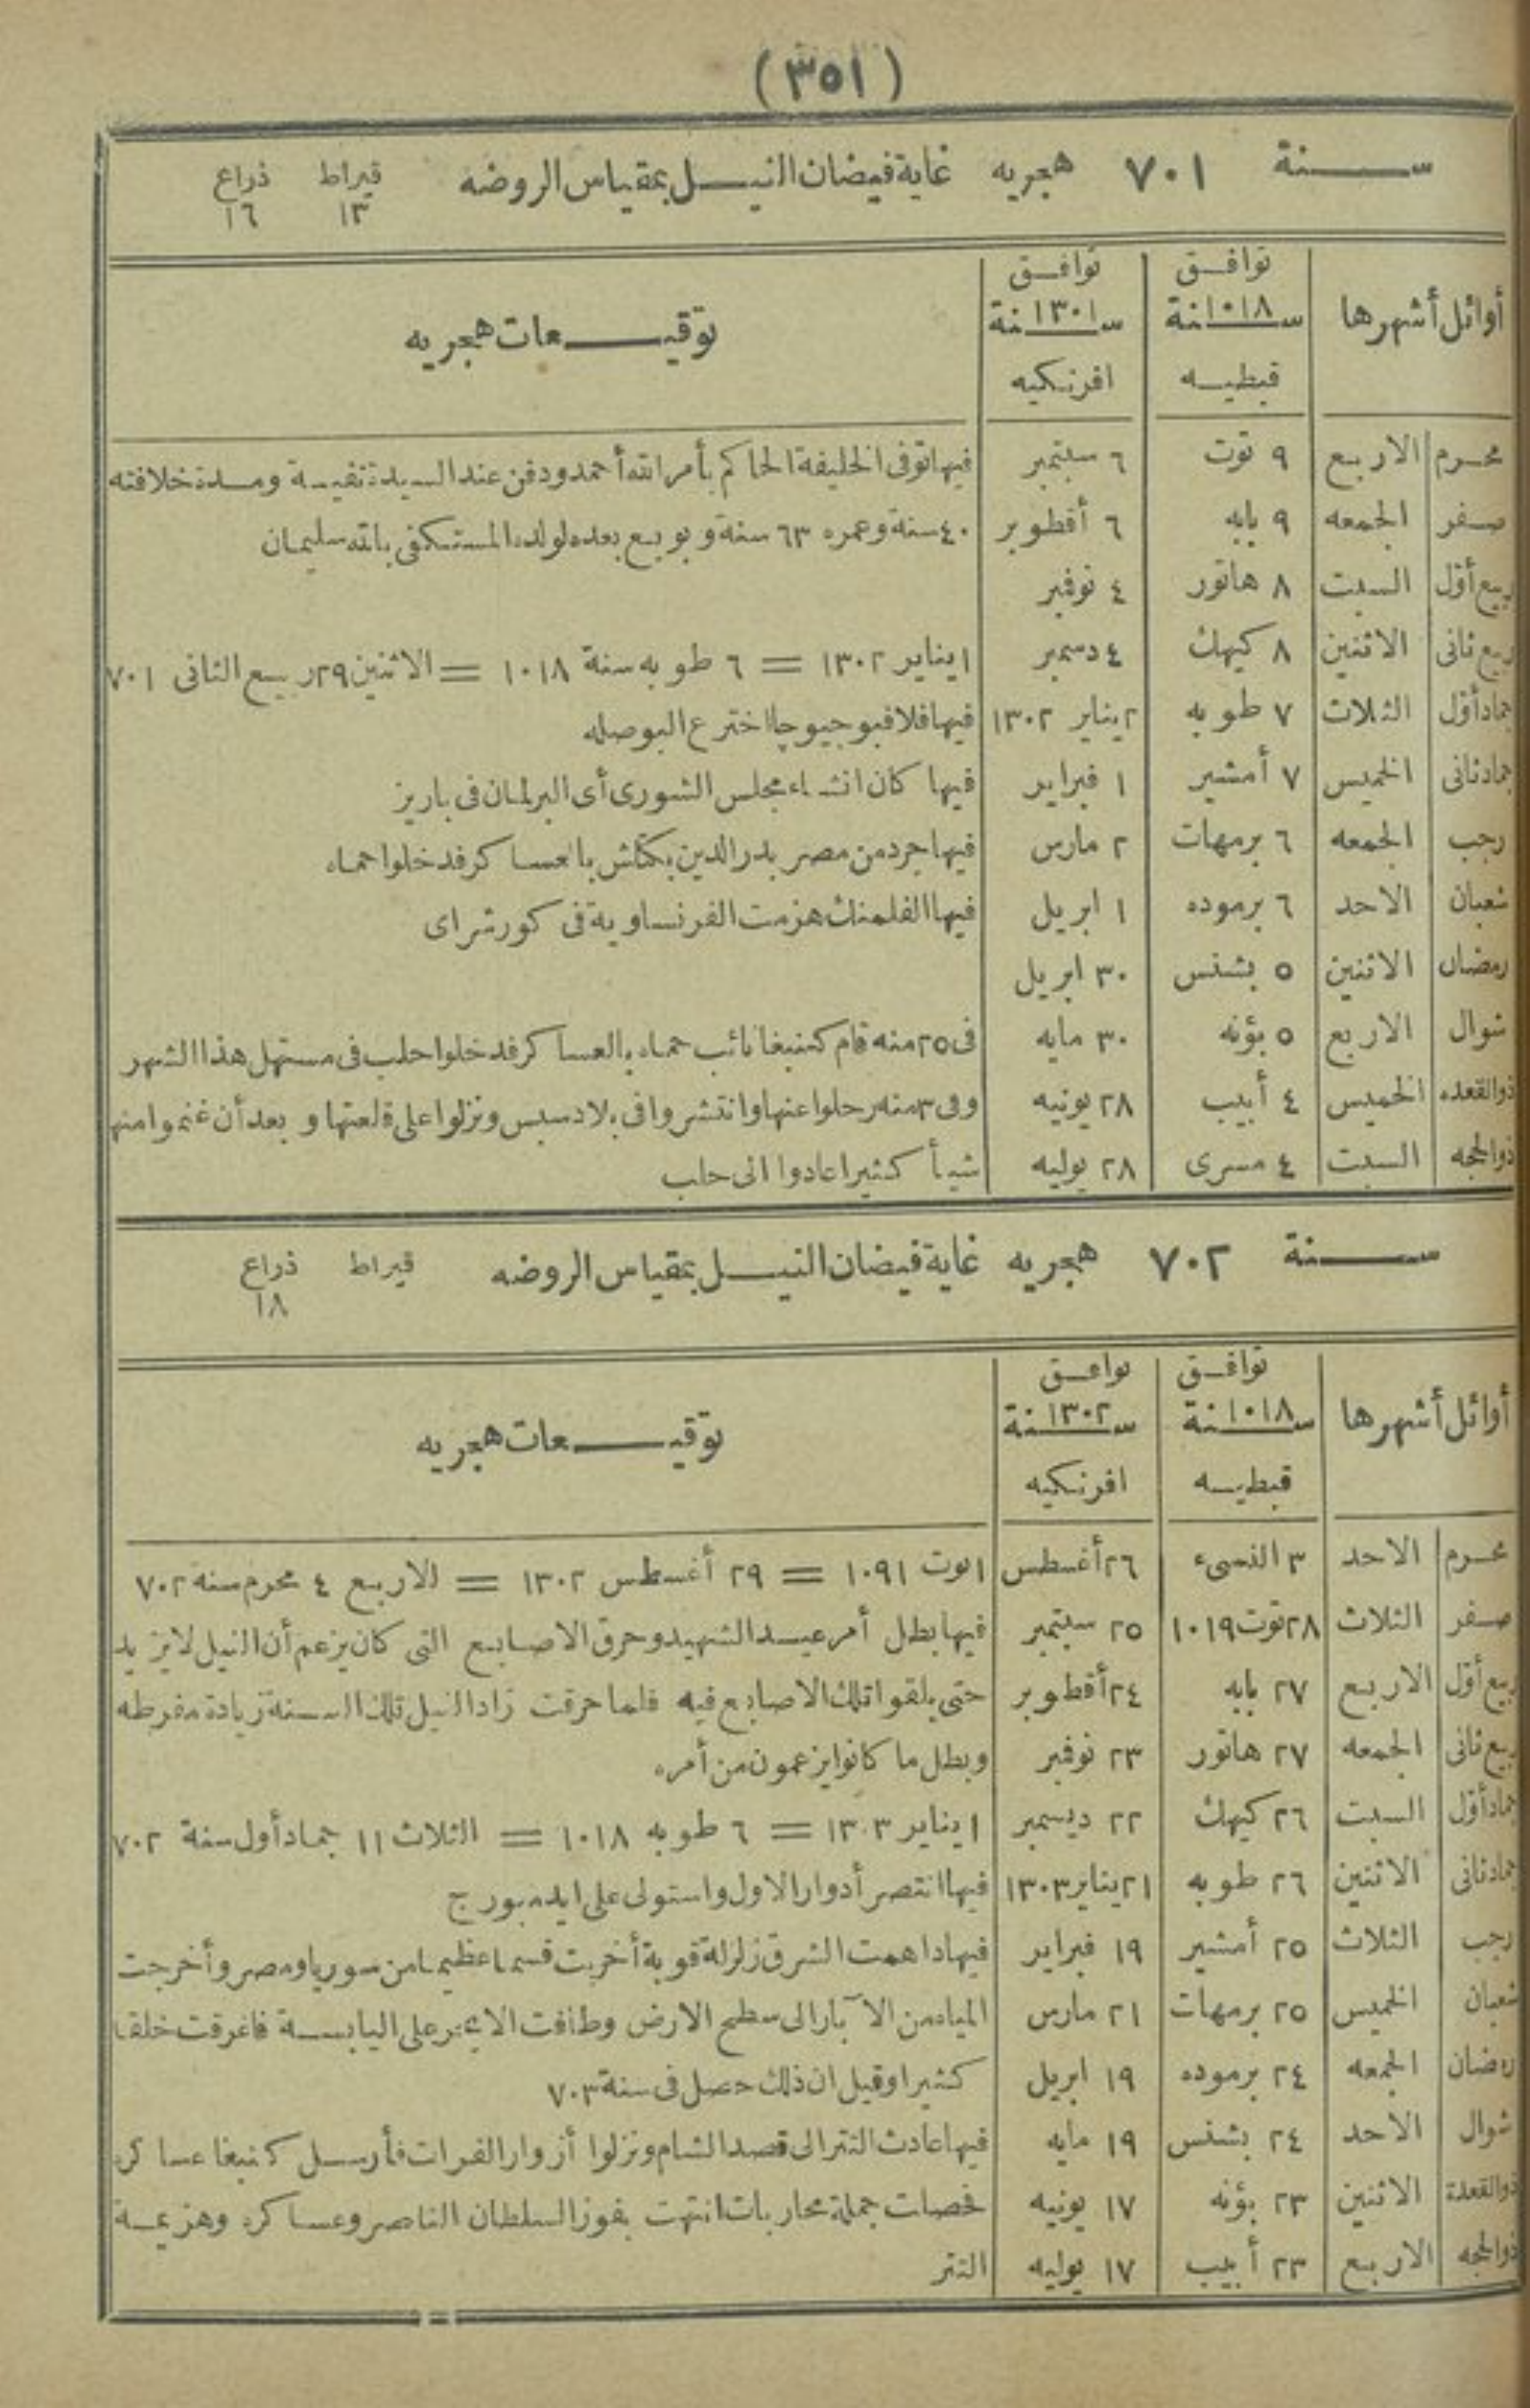 (٣٥١)
سنة ٧٠١ هجريه غاية فيضان النيل بمقياس الروضه قيراط ذراع
١٣ ١٦
أوائل أشهرها توافق سنة ١٠١٨ قبطيه توافق سنة ١٣٠١ افرنكيه توقيعات هجريه
محرم الاربع ٩ توت ٦ سبتمبر فيها توفى الخليفة الحاكم بأمر الله أحمد ودفن عند السيدة نفيسة ومدة خلافته
صفر الجمعه ٩ بابه ٦ أقطوبر ٤٠ سنة وعمره ٦٣ سنة وبويع بعده لولده المستكفى بالله سليمان
ربيع أوّل السبت ٨ هاتور ٤ نوفمبر
ربيع ثانى الاثنين ٨ كيهك ٤ دسمبر ١ يناير ١٣٠٢ = ٦ طوبه سنة ١٠١٨ = الاثنين ٢٩ ربيع الثانى ٧٠١
جماد أوّل الثلاث ٧ طوبه ٢ يناير ١٣٠٢ فيها فلافيو جيوجا اخترع البوصله
جماد ثانى الخميس ٧ أمشير ١ فبراير فيها كان انشاء مجلس الشورى أى البرلمان فى باريز
رجب الجمعه ٦ برمهات ٢ مارس فيها جرد من مصر بدر الدين بكتاش بالعساكر فدخلوا حماه
شعبان الاحد ٦ برموده ١ ابريل فيها الفلمنك هزمت الفرنساوية فى كورتراى
رمضان الاثنين ٥ بشنس ٣٠ ابريل
شوال الاربع ٥ بؤنه ٣٠ مايه فى ٢٥ منه قام كتبغا نائب حماه بالعساكر فدخلوا حلب فى مستهل هذا الشهر
ذوالقعده الخميس ٤ أبيب ٢٨ يونيه وفى ٣ منه رحلوا عنها وانتشروا فى بلاد سيس ونزلوا على قلعتها وبعد أن غنموا منها
ذوالحجه السبت ٤ مسرى ٢٨ يوليه شيأ كثيرا عادوا الى حلب
سنة ٧٠٢ هجريه غاية فيضان النيل بمقياس الروضه قيراط ذراع
١٨
أوائل أشهرها توافق سنة ١٠١٨ قبطيه توافق سنة ١٣٠٢ افرنكيه توقيعات هجريه
محرم الاحد ٣ النسىء ٢٦ أغسطس ١ توت ١٠٩١ = ٢٩ أغسطس ١٣٠٢ = الاربع ٤ محرم سنة ٧٠٢
صفر الثلاث ٢٨ توت ١٠١٩ ٢٥ سبتمبر فيها بطل أمر عيد الشهيد وحرق الاصابع التى كان يزعم أن النيل لايزيد
ربيع أوّل الاربع ٢٧ بابه ٢٤ أقطوبر حتى يلقوا تلك الاصابع فيه فلما حرقت زاد النيل تلك السنة زيادة مفرطه
ربيع ثانى الجمعه ٢٧ هاتور ٢٣ نوفمبر وبطل ما كانوا يزعمون من أمره
جماد أوّل السبت ٢٦ كيهك ٢٢ ديسمبر ١ يناير ١٣٠٣ = ٦ طوبه ١٠١٨ = الثلاث ١١ جماد أول سنة ٧٠٢
جماد ثانى الاثنين ٢٦ طوبه ٢١ يناير ١٣٠٣ فيها انتصر أدوار الاول واستولى على ايدمبورج
رجب الثلاث ٢٥ أمشير ١٩ فبراير فيها داهمت الشرق زلزلة قوية أخربت قسما عظيما من سوريا ومصر وأخرجت
شعبان الخميس ٢٥ برمهات ٢١ مارس المياه من الآبار الى سطح الارض وطافت الابحر على اليابسة فاغرقت خلقا
رمضان الجمعه ٢٤ برموده ١٩ ابريل كثيرا وقيل ان ذلك حصل فى سنة ٧٠٣
شوال الاحد ٢٤ بشنس ١٩ مايه فيها عادت التتر الى قصد الشام ونزلوا أزوار الفرات فأرسل كتبغا عساكر
ذوالقعدة الاثنين ٢٣ بؤنه ١٧ يونيه فحصلت جملة محاربات انتهت بفوز السلطان الناصر وعساكره وهزيمة
ذوالحجه الاربع ٢٣ أبيب ١٧ يوليه التتر